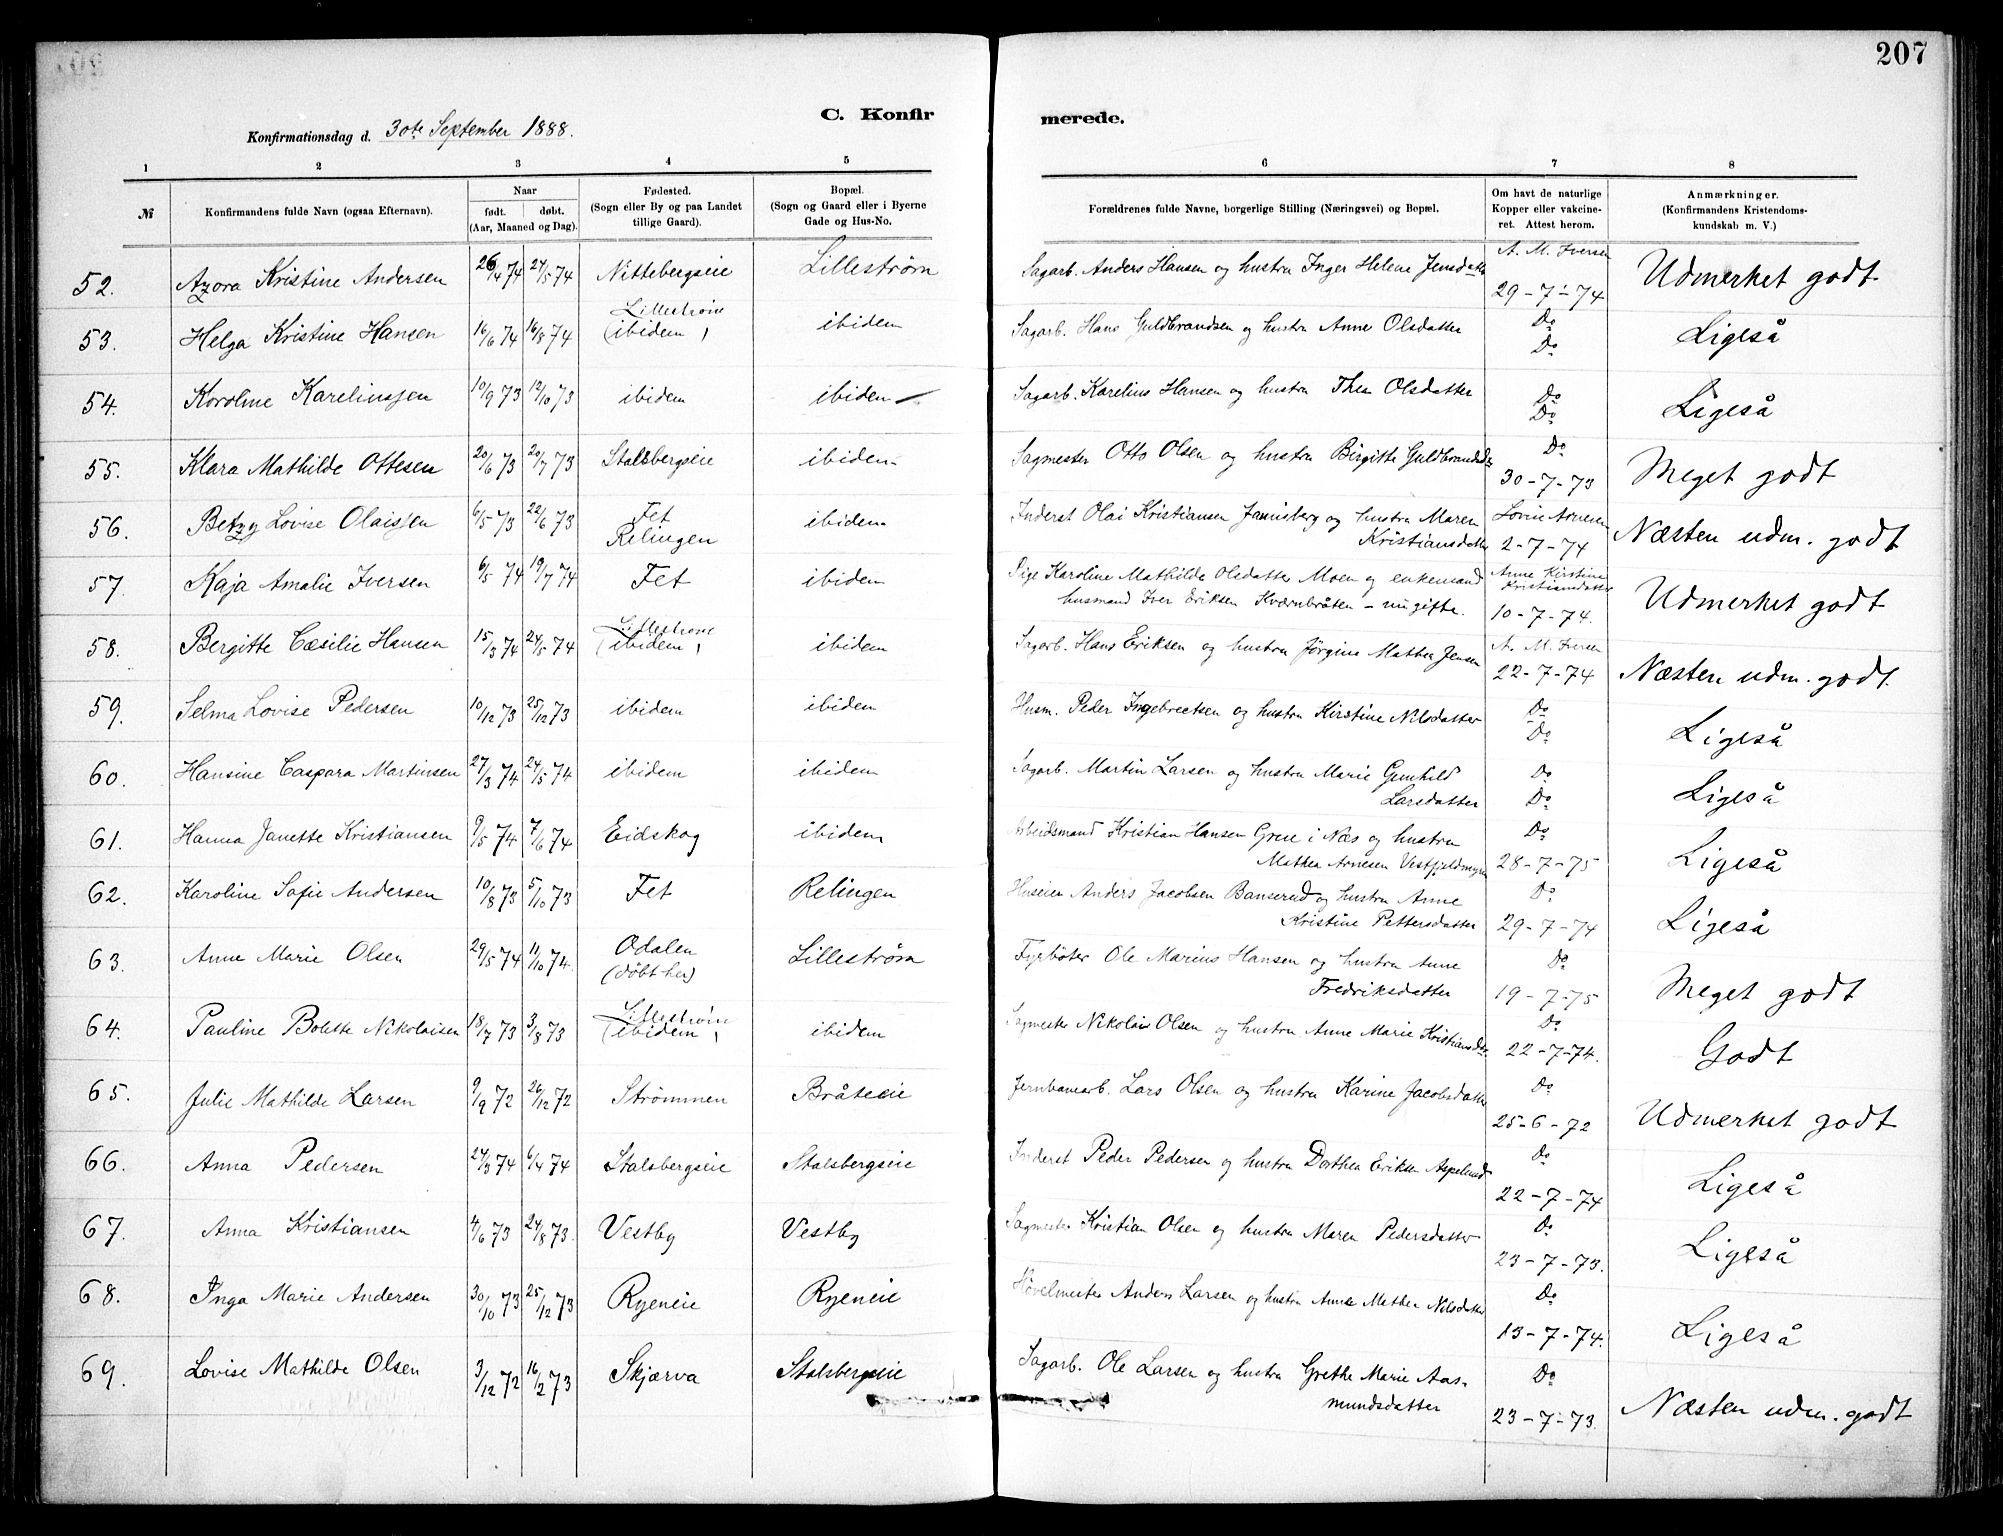 207
C. Konfirmerede.
Konfirmationsdag d. 30te September 1888.
1 2 3 4 5 6 7 8
№ Konfirmandens fulde Navn (ogsaa Efternavn). Naar født. døbt. (Aar, Maaned og Dag). Fødested. (Sogn eller By og paa Landet tillige Gaard). Bopæl. (Sogn og Gaard eller i Byerne Gade og Hus-No. Forældrenes fulde Navne, borgerlige Stilling (Næringsvei) og Bopæl. Om havt de naturlige Kopper eller vakcineret. Attest herom. Anmærkninger. (Konfirmandens Kristendomskundskab m. V.)
52. Azora Kristine Andersen 26/4 74 24/5 74 Nittebergseie Lillestrøm Sagarb. Anders Hansen og hustru Inger Helene Jensdatter A. M. Iversen 29-7-74 Udmerket godt
53. Helga Kristine Hansen 16/6 74 16/8 74 Lillestrøm (ibidem) ibidem Sagarb. Hans Guldbrandsen og hustru Anne Olsdatter Do Do Ligeså
54. Karoline Kareliussen 10/9 73 12/10 73 ibidem ibidem Sagarb. Karelius Hansen og hustru Thea Olsdatter Do Do Ligeså
55. Klara Mathilde Ottesen 20/6 73 20/7 73 Stalsbergseie ibidem Sagmester Otto Olsen og hustru Birgitte Guldbrandsdtr Do 30-7-73 Meget godt
56. Betzy Lovise Olaisen 6/5 73 22/6 73 Fet Relingen ibidem Inderst Olai Kristiansen og hustru Maren Kristiansdatter Lovise Arnesen 2-7-74 Næsten udm. godt
57. Kaja Amalie Iversen 6/5 74 19/7 74 Fet ibidem Pige Karoline Mathilde Olsdatter Moen og enkemand husmand Iver Eriksen Kværnbråten - nu gifte. Anne Kirstine Kristiansdatter 10-7-74. Udmerket godt
58. Bergitte Cæsilie Hansen 15/3 74 24/5 74 Lillestrøm (ibidem) ibidem Sagarb. Hans Eriksen og hustru Jørgine Mathea Jensen A. M. Iversen 22-7-74 Næsten udm. godt.
59. Selma Lovise Pedersen 10/12 73 25/12 73 ibidem ibidem Husm. Peder Ingebretsen og hustru Kirstine Nilsdatter Do Do Ligeså
60. Hansine Caspara Martinsen 27/3 74 24/5 74 ibidem ibidem Sagarb. Martin Larsen og hustru Marie Gunhild Larsdatter Do Do Ligeså
61. Hanna Janette Kristiansen 9/5 74 7/6 74 Eidskog ibidem Arbeidsmand Kristian Hansen Grue i Næs og hustru Mathea Arnesen Do 28-7-75 Ligeså
62. Karoline Sofie Andersen 10/8 73 5/10 73 Fet Relingen Huseier Anders Jacobsen Banserud og hustru Anne Kristine Pettersdatter Do 29-7-74 Ligeså
63. Anne Marie Olsen 29/5 74 11/10 74. Odalen (døbt her) Lillestrøm Fyrbøter Ole Marius Hansen og hustru Anne Fredriksdatter Do 19-7-75 Meget godt
64. Pauline Bolette Nikolaisen 18/7 73 3/8 73 Lillestrøm (ibidem) ibidem Sagmester Nikolai Olsen og hustru Anne Marie Kristiansdtr. Do 22-7-74. Godt
65. Julie Mathilde Larsen 9/9 72 26/12 72 Strømmen Bråteeie Jernbanearb. Lars Olsen og hustru Karine Jacobsdatter Do 25-6-72 Udmerket godt
66. Anna Pedersen 24/3 74 6/4 74 Stalsbergseie Stalsbergseie Inderst Peder Pedersen og hustru Dorthea Eriksen Aspelund Do 22-7-74 Ligeså
67. Anna Kristiansen 4/6 73 24/8 73. Vestby Vestby Sagmester Kristian Olsen og hustru Maren Pedersdatter Do 23-7-73. Ligeså
68. Inga Marie Andersen 30/10 73 25/12 73 Ryeneie Ryeneie Høvelmester Anders Larsen og hustru Anne Mathea Nilsdatter Do 13-7-74. Ligeså
69. Lovise Mathilde Olsen 3/12 72 16/2 73 Skjærva Stalsbergseie Sagarb. Ole Larsen og hustru Grethe Marie Aasmundsdatter Do 23-7-73. Næsten udm. godt